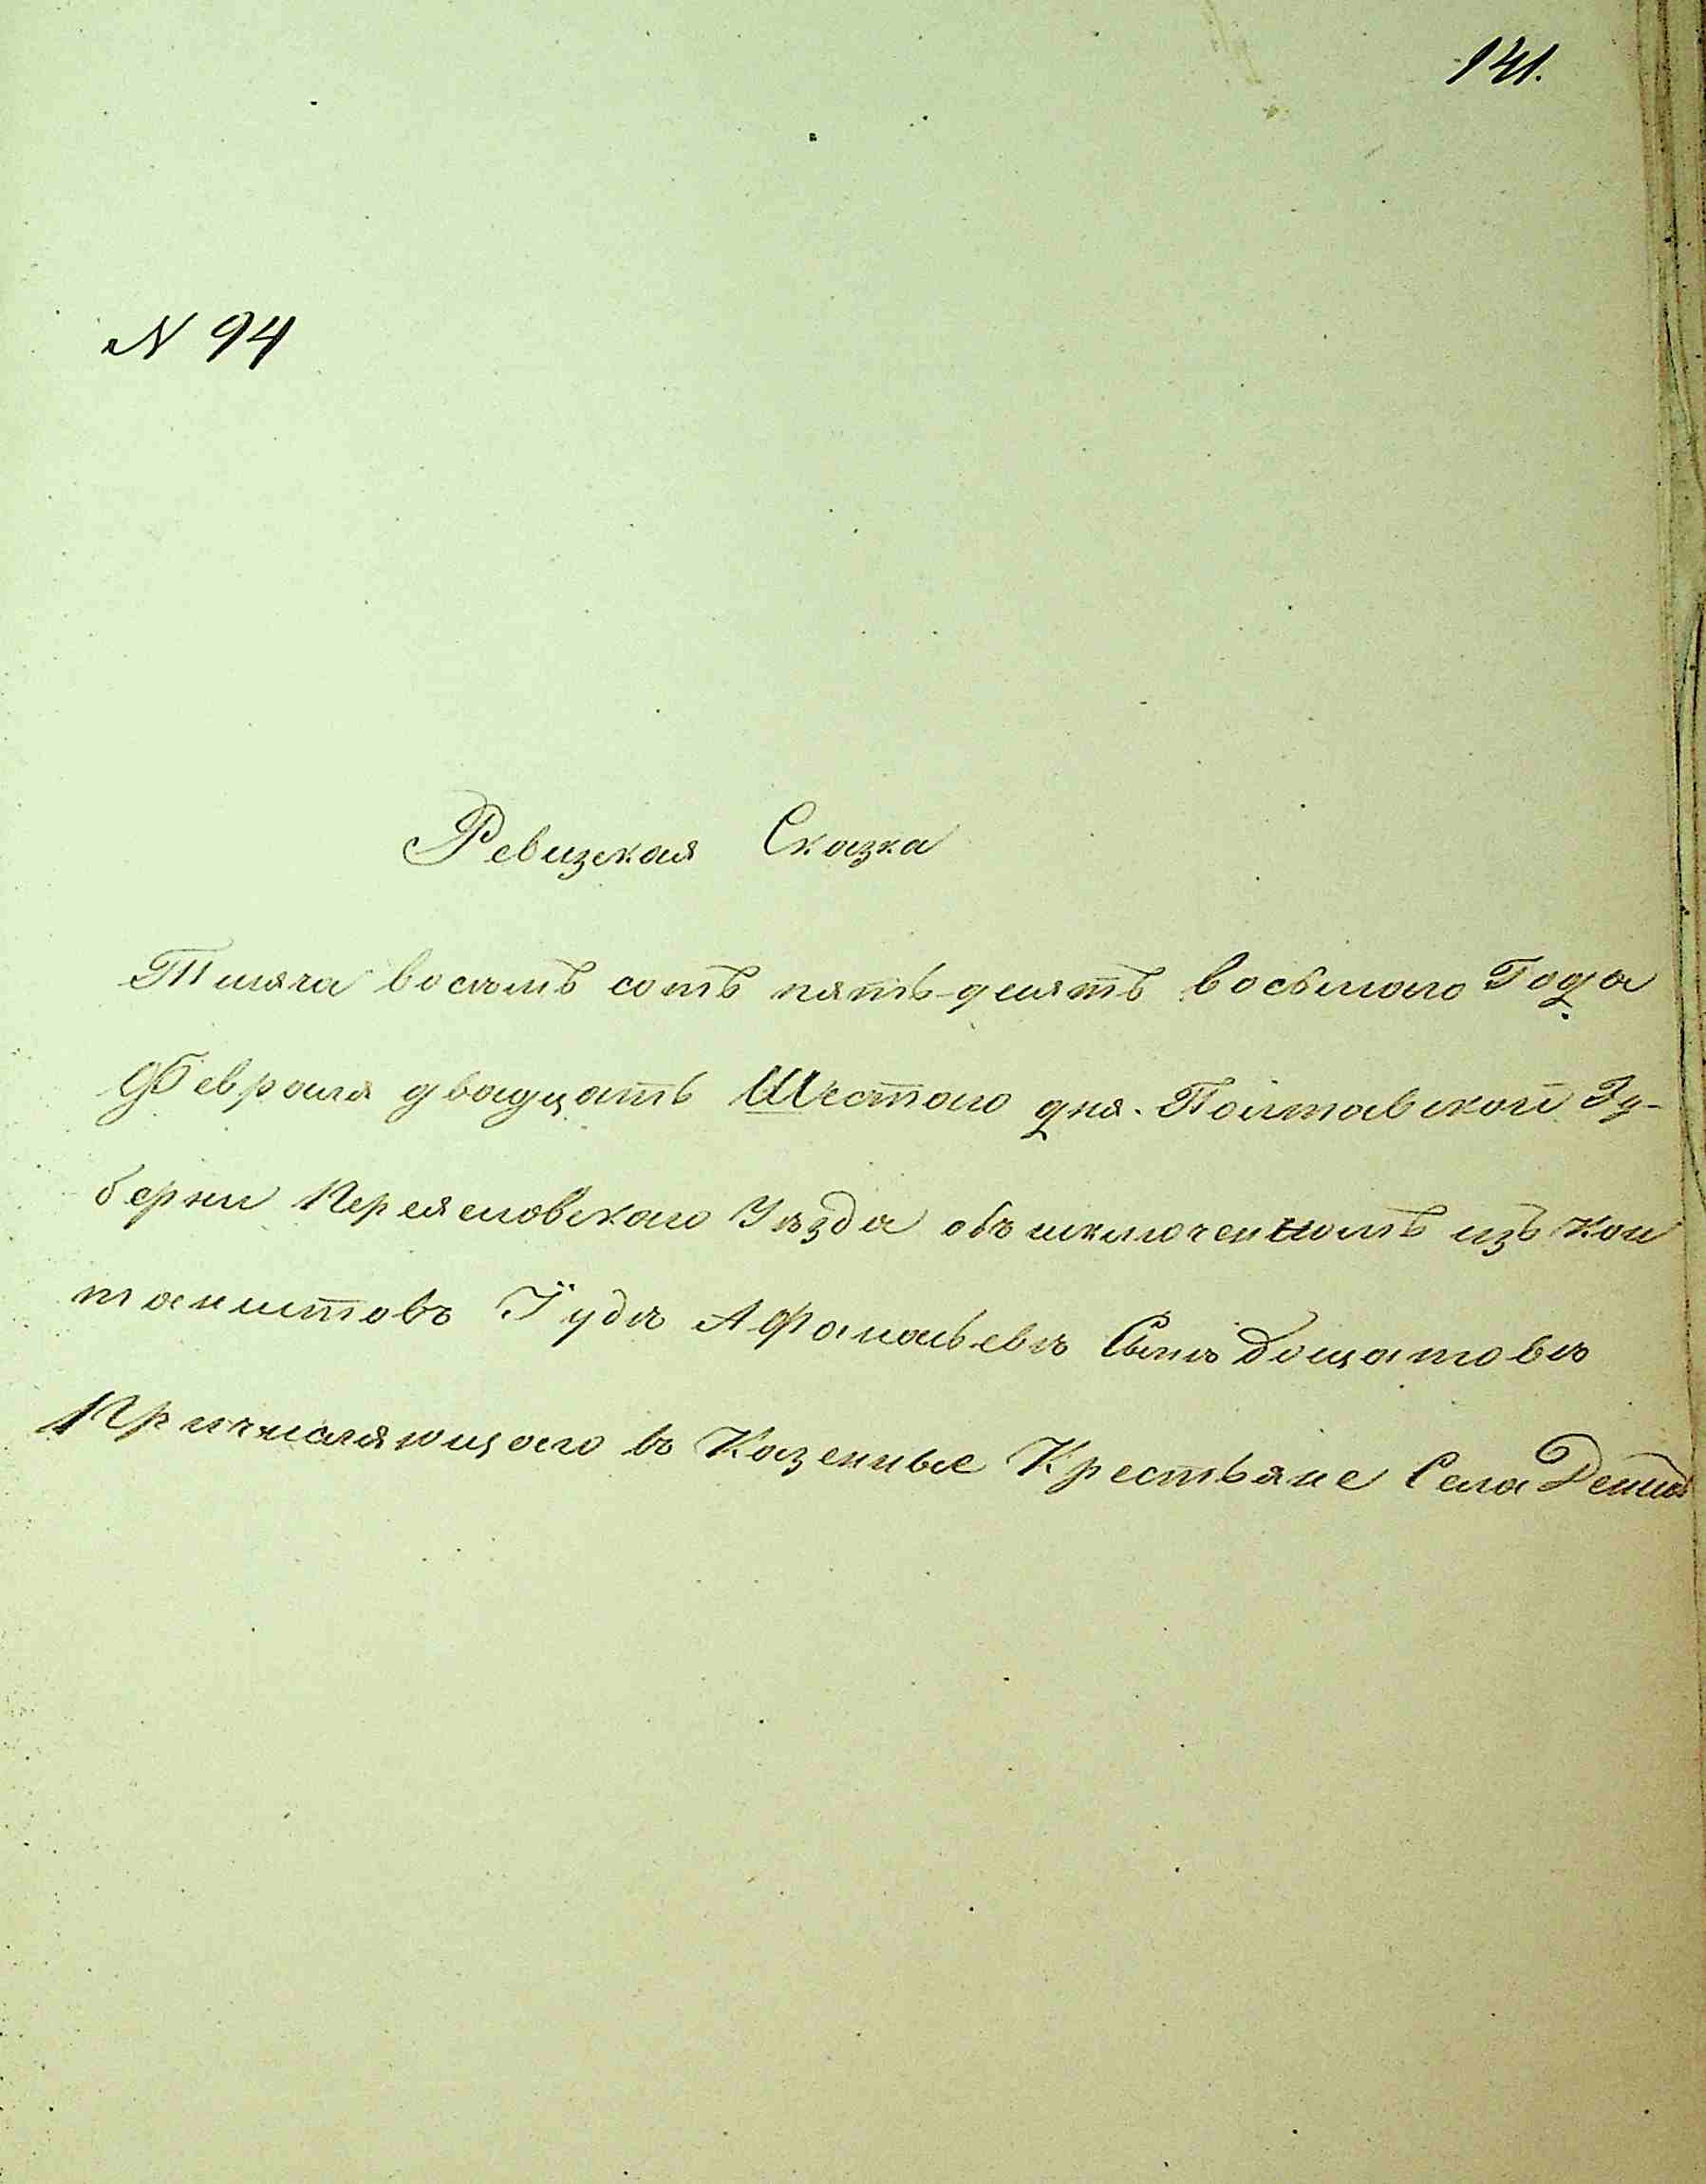 141.
N 94
Ревизская Сказка
Тисяча восемь сотъ пять-десятъ восьмаго Года
Февраля двадцать Шестаго дня. Полтавской Гу-
берни Переясловскаго Уѣзда объ изключенномъ изъ Кан
тонистовъ Іудѣ Афанасьевѣ Сынѣ
Причисляющаго въ Казенные Крестьяне Села